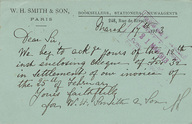 W. H. SMITH & SON
PARIS
BOOKSELLERS, STATIONERS, NEWSAGENTS
248, Rue de Rivoli
March 17th
Dear Sir,
We beg to ack yours of the 16th
inst enclosing cheque of
in settlement of our invoice of
the 25 of February.
Yours faithfully
for W. H. Smith & Son